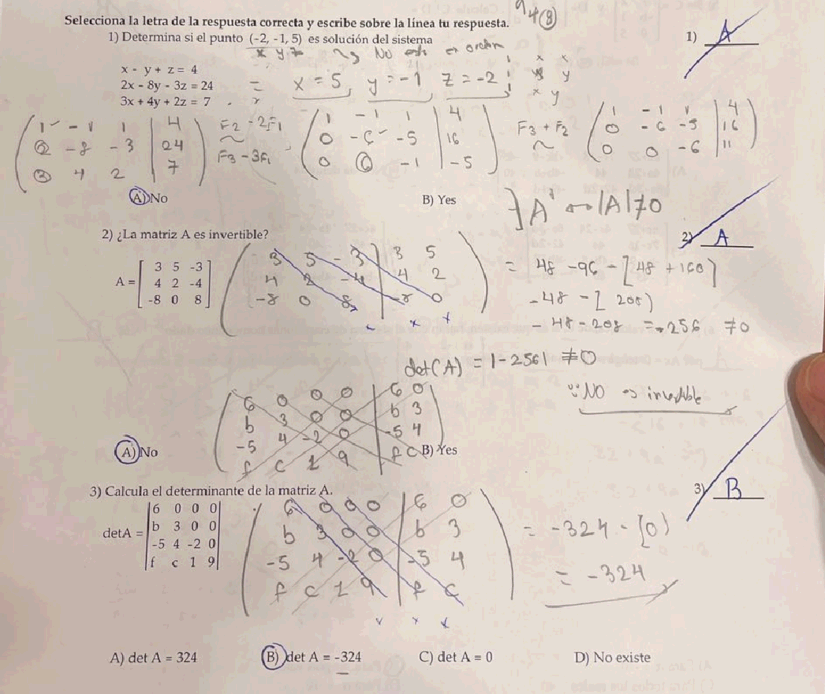 4(8)
Selecciona la letra de la respuesta correcta y escribe sobre la línea tu respuesta.
1) Determina si el punto (-2, -1, 5) es solución del sistema
1) A
x y z No está en orden
x - y + z = 4
2x - 8y - 3z = 24
3x + 4y + 2z = 7
= x = 5, y = -1, z = -2
1 -1 1 | 4
2 -8 -3 | 24
3 4 2 | 7
F2 - 2F1
~
F3 - 3F1
1 -1 1 | 4
0 -6 -5 | 16
0 6 -1 | -5
F3 + F2
~
1 -1 1 | 4
0 -6 -5 | 16
0 0 -6 | 11
A) No
B) Yes
∃ A ↔ |A| ≠ 0
2) ¿La matriz A es invertible?
2) A
A =
3 5 -3
4 2 -4
-8 0 8
3 5 -3 | 3 5
4 2 -4 | 4 2
-8 0 8 | -8 0
= 48 -96 - [48 + 160]
-48 - [208)
-48 - 208 = -256 ≠ 0
det(A) = |-256| ≠ 0
∴ NO es invertible
6 0 0 0 | 6 0
b 3 0 0 | b 3
-5 4 -2 0 | -5 4
f c 1 9 | f c
A) No
B) Yes
3) Calcula el determinante de la matriz A.
3) B
detA =
6 0 0 0
b 3 0 0
-5 4 -2 0
f c 1 9
6 0 0 0 | 6 0
b 3 0 0 | b 3
-5 4 -2 0 | -5 4
f c 1 9 | f c
= -324 - (0)
= -324
A) det A = 324
B) det A = -324
C) det A = 0
D) No existe